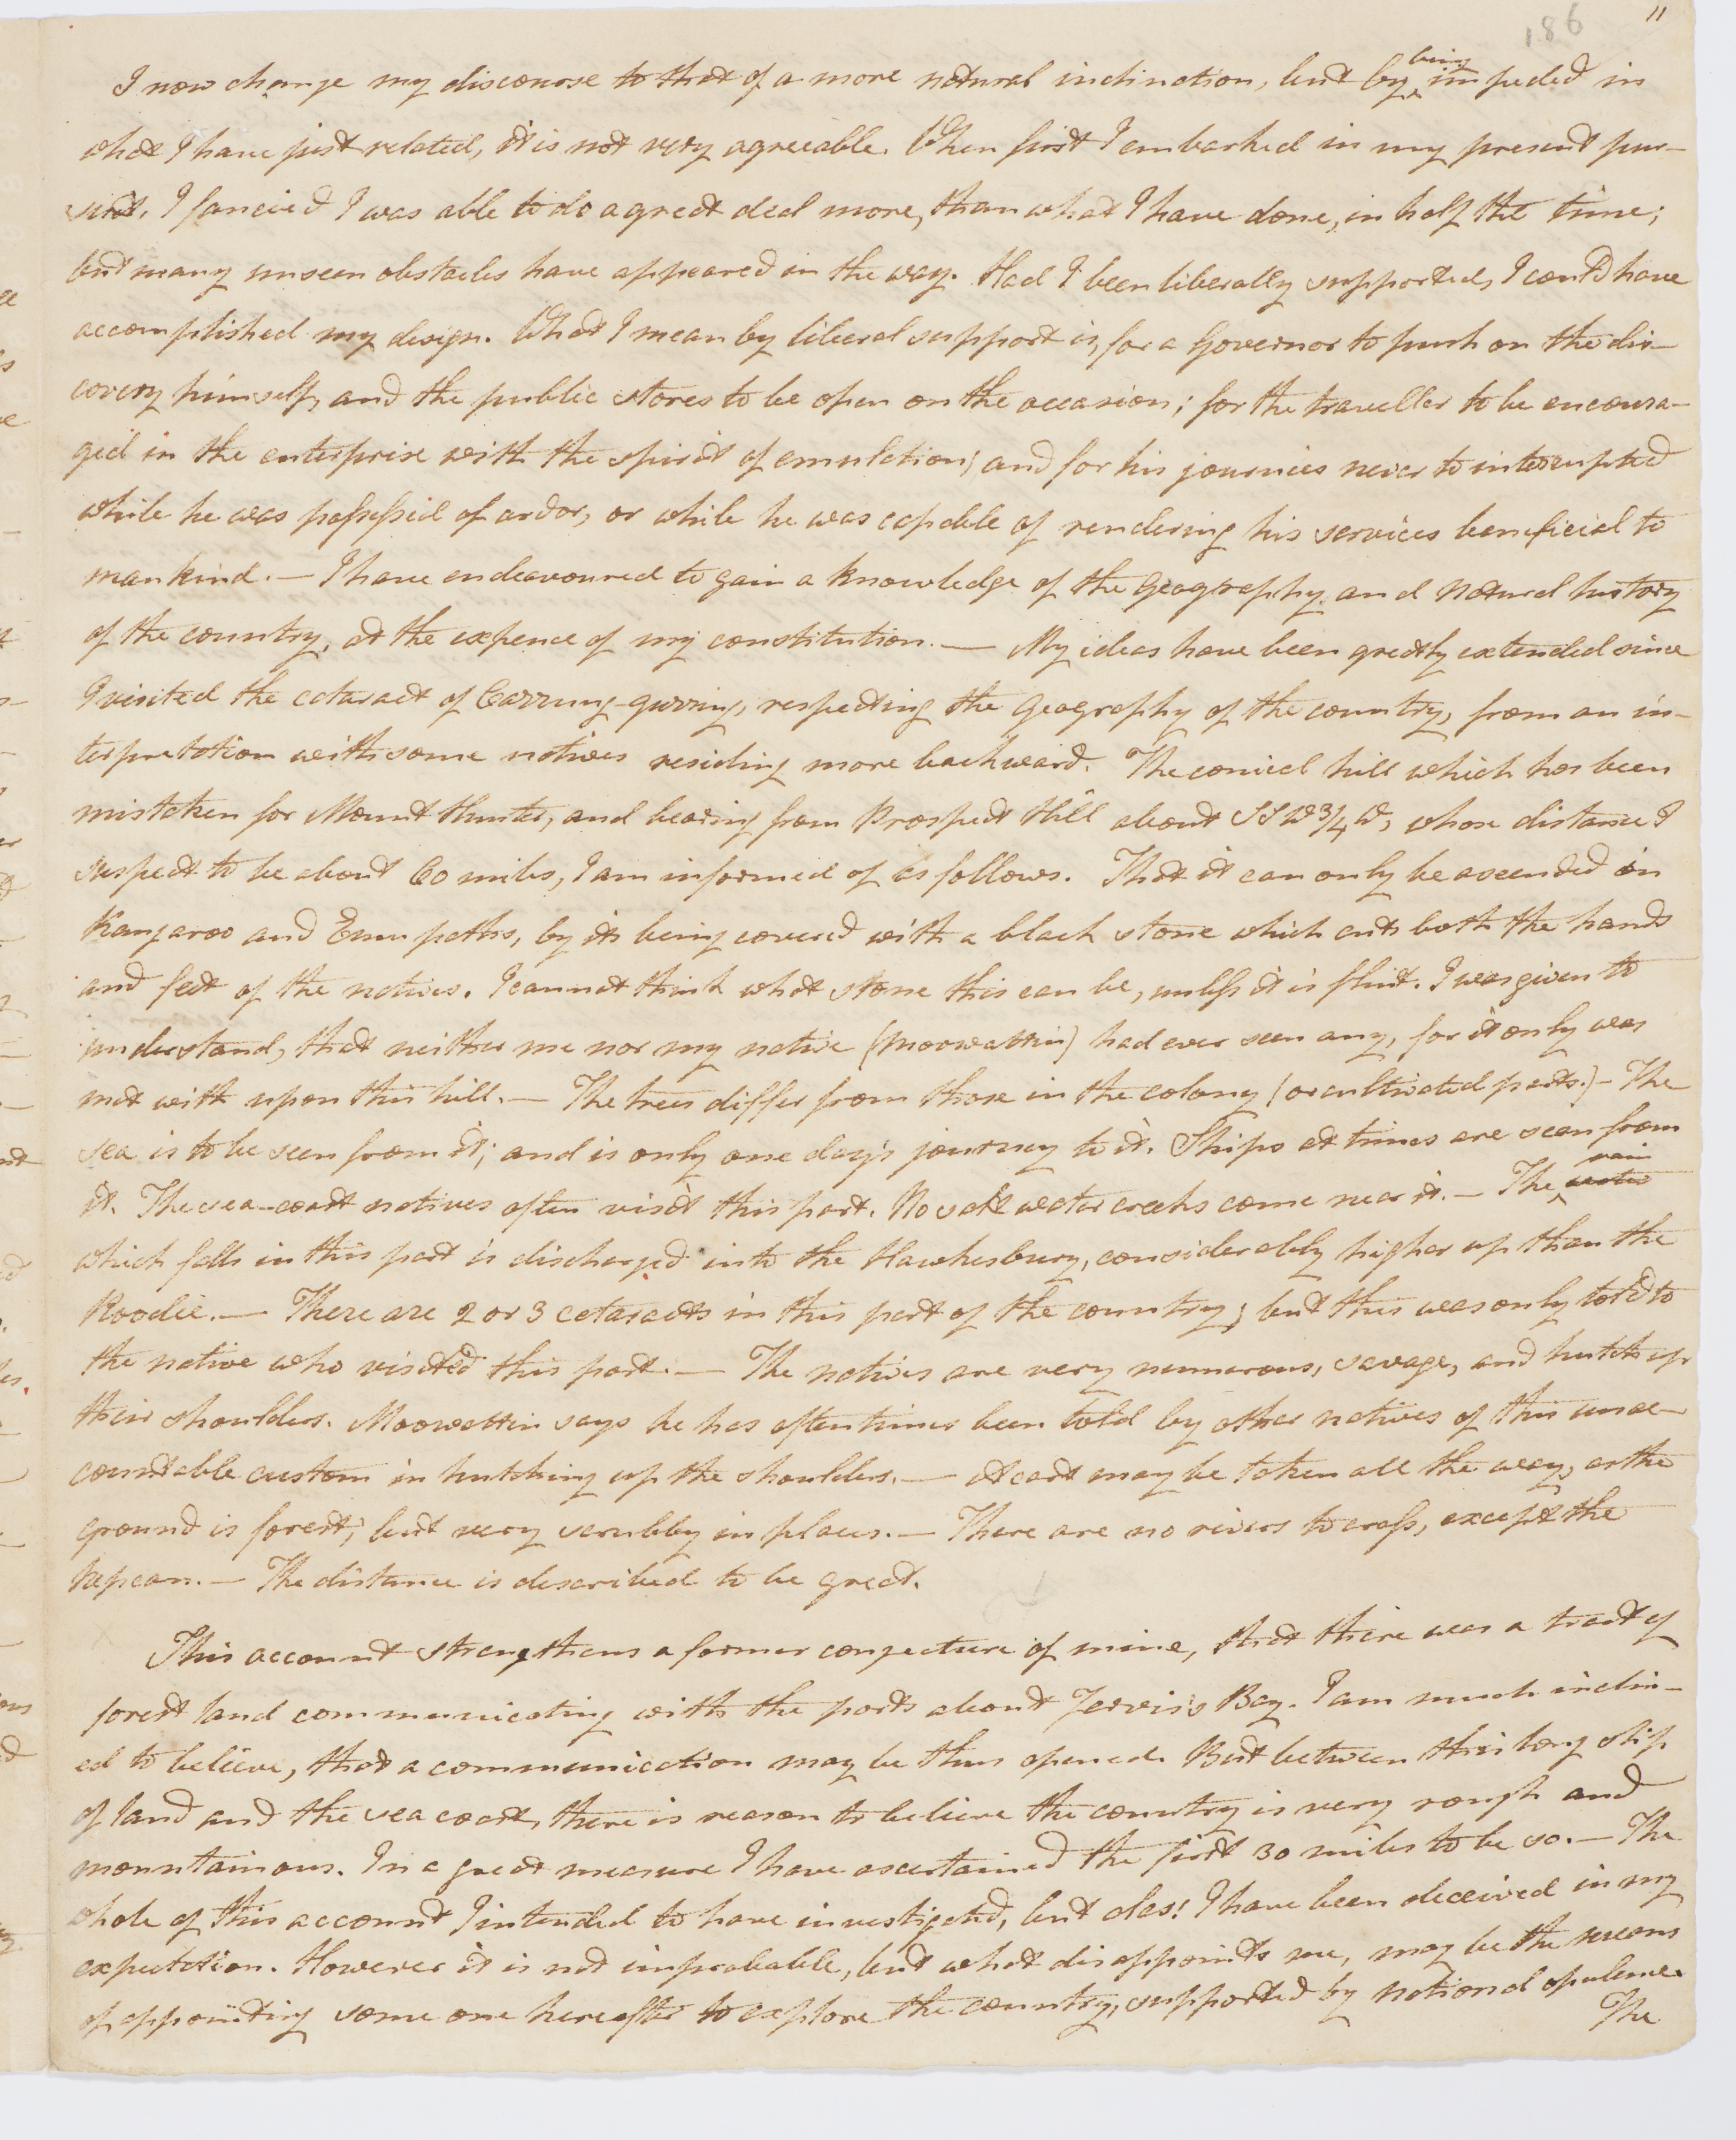 186
11
I now change my discourse to that of a more natural inclination, but by being impeded in
what I have just related, it is not very agreeable. When first I embarked in my present pur-
suit, I fancied I was able to do a great deal more, than what I have done, in half the time;
but many unseen obstacles have appeared in the way. Had I been liberally supported, I could have
accomplished my design. What I mean by liberal support is, for a Governor to push on the dis-
covery himself, and the public stores to be open on the occasion; for the traveller to be encoura-
ged in the enterprise with the spirit of emulation; and for his journies never to interrupted
while he was possessed of ardor, or while he was capable of rendering his services beneficial to
mankind. — I have endeavoured to gain a knowledge of the Geography and Natural history
of the country, at the expence of my constitution. — My ideas have been greatly extended since
I visited the cataract of Carrung-gurring, respecting the Geography of the country, from an in-
terpretation with some natives residing more backward. The conical hill which has been
mistaken for Mount Hunter, and bearing from Prospect Hill about SSW 3/4 W, whose distance I
suspect to be about 60 miles, I am informed of as follows. That it can only be ascended in
Kangaroo and Emu paths, by its being covered with a black stone which cuts both the hands
and feet of the natives. I cannot think what stone this can be, unless it is flint. I was given to
understand, that neither me nor my native (Moowattin) had ever seen any, for it only was
met with upon this hill. — The trees differ from those in the colony (or cultivated parts.) — The
sea is to be seen from it; and is only one day's journey to it. Ships at times are seen from
it. The sea-coast natives often visit this part. No salt water creeks come near it. — The rain water
which falls in this part is discharged into the Hawkesbury, considerably higher up than the
Roodie. — There are 2 or 3 cataracts in this part of the country; but this was only told to
the native who visited this part. — The natives are very numerous, savage, and hutch up
their shoulders. Moowattin says he has oftentimes been told by other natives of this unac-
countable custom in hutching up the shoulders. — A cart may be taken all the way, as the
ground is forest; but very scrubby in places. — There are no rivers to cross, except the
Nepean. — The distance is described to be great.
This account strengthens a former conjecture of mine, that there was a tract of
forest land communicating with the parts about Jervis's Bay. I am much inclin-
ed to believe, that a communication may be thus opened. But between this long slip
of land and the sea coast, there is reason to believe the country is very rough and
mountainous. In a great measure I have ascertained the first 30 miles to be so. — The
whole of this account I intended to have investigated, but alas! I have been deceived in my
expectation. However it is not improbable, but what disappoints me, may be the means
of appointing some one hereafter to explore the country, supported by national opulence.
The